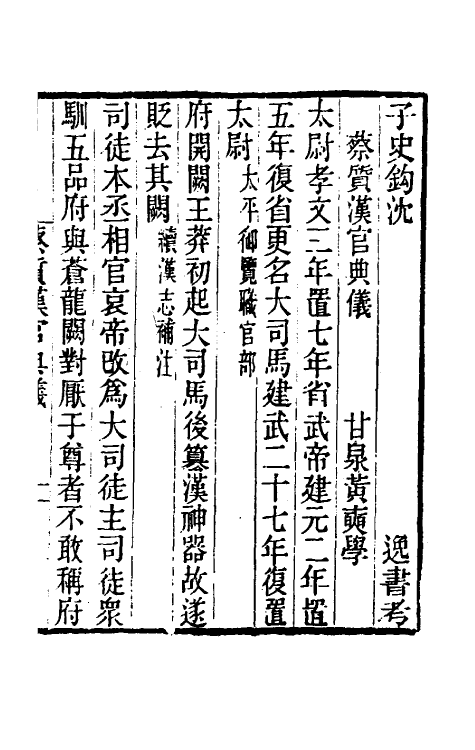 子史鈎沈 逸書考
蔡質漢官典儀 甘泉黃奭學
太尉孝文三年置七年省武帝建元二年置
五年復省更名大司馬建武二十七年復置
太尉 太平御覽職官部
府開闕王莽初起大司馬後篡漢神器故遂
貶去其闕 續漢志補注
司徒本丞相官哀帝改爲大司徒主司徒衆
馴五品府與蒼龍闕對厭于尊者不敢稱府
蔡質漢官典儀